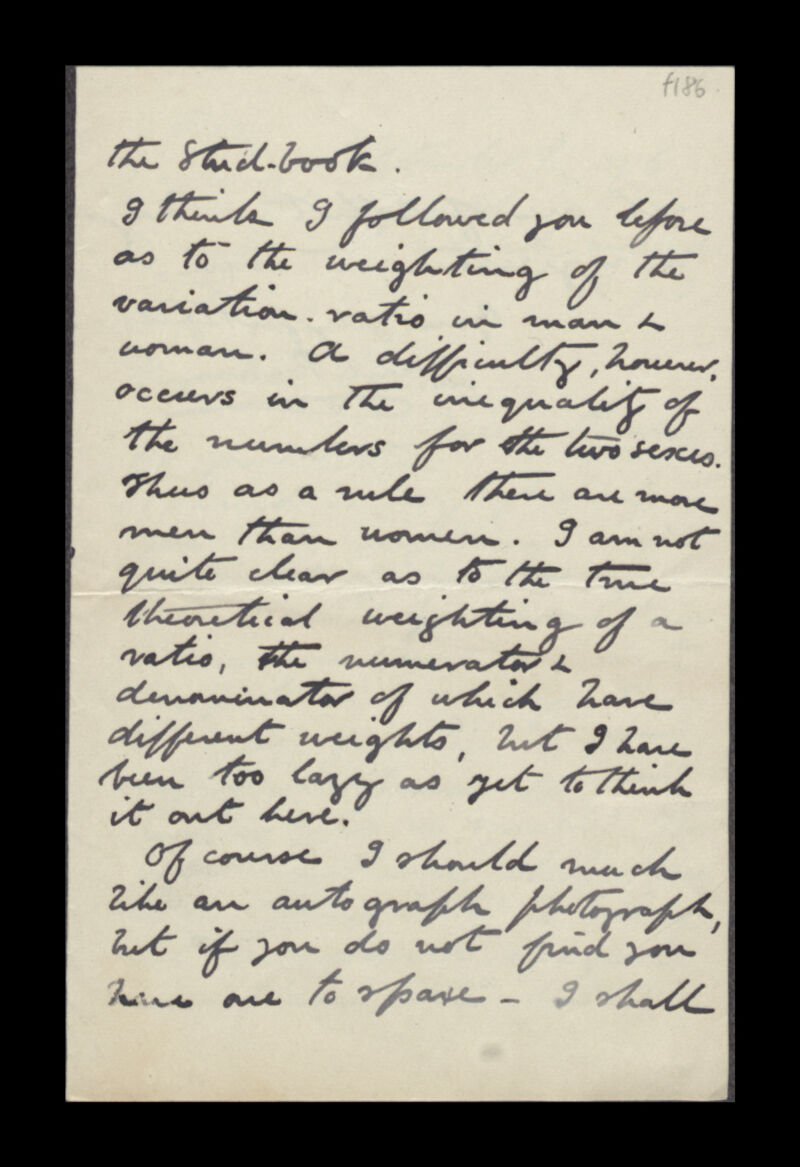 f186
the Stud-book.
I think I followed you before
as to the weighting of the
variation-ratio in man &
woman. A difficulty, however,
occurs in the inequality of
the numbers for the two sexes.
Thus as a rule there are more
men than women. I am not
quite clear as to the true
theoretical weighting of a
ratio, the numerator &
denominator of which have
different weights, but I have
been too lazy as yet to think
it out here.
Of course I should much
like an autograph photograph,
but if you do not find you
have one to spare - I shall